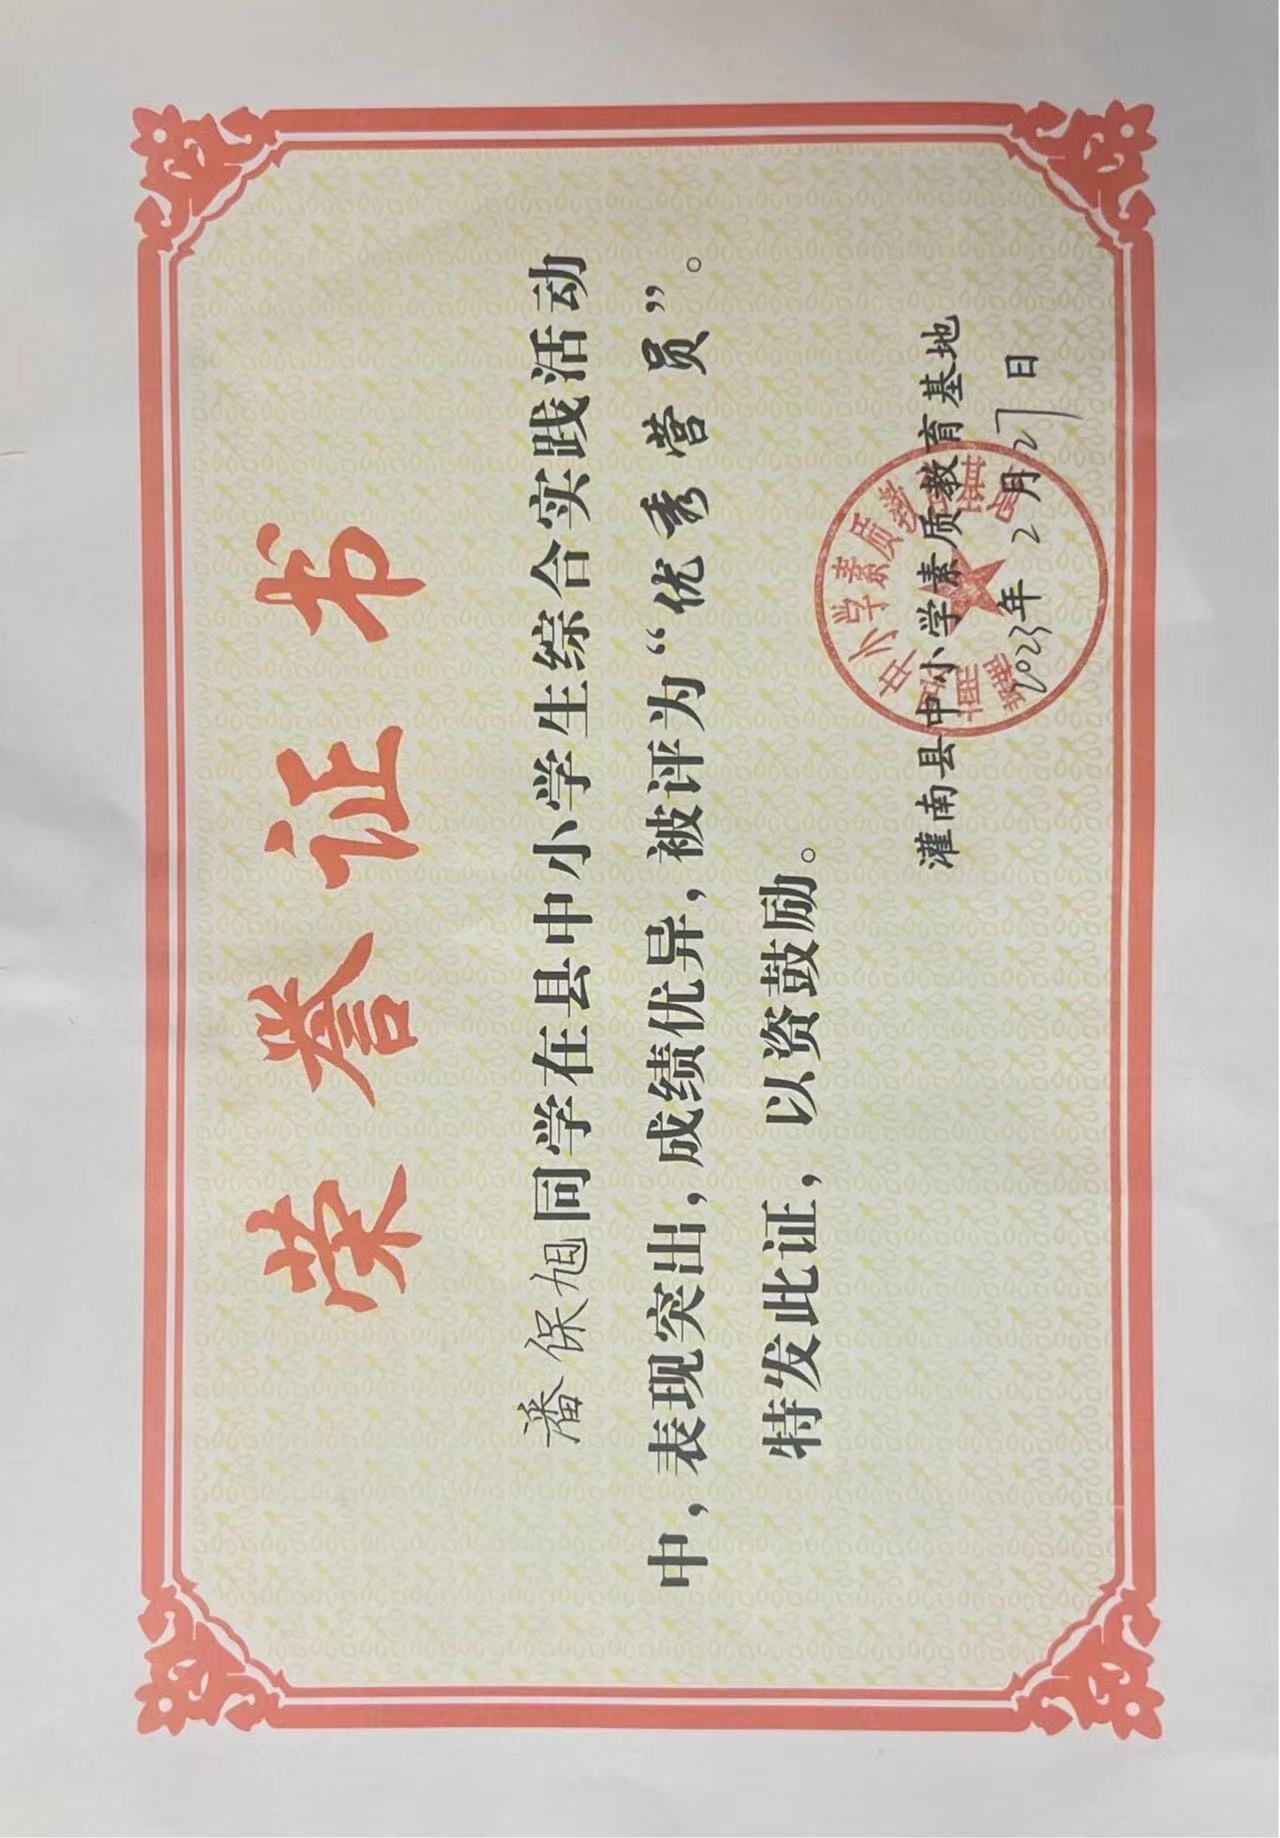 荣誉证书
潘保旭同学在县中小学生综合实践活动
中，表现突出，成绩优异，被评为“优秀营员”。
特发此证，以资鼓励。
灌南县中小学素质教育基地
2023年2月27日
中小学素质教